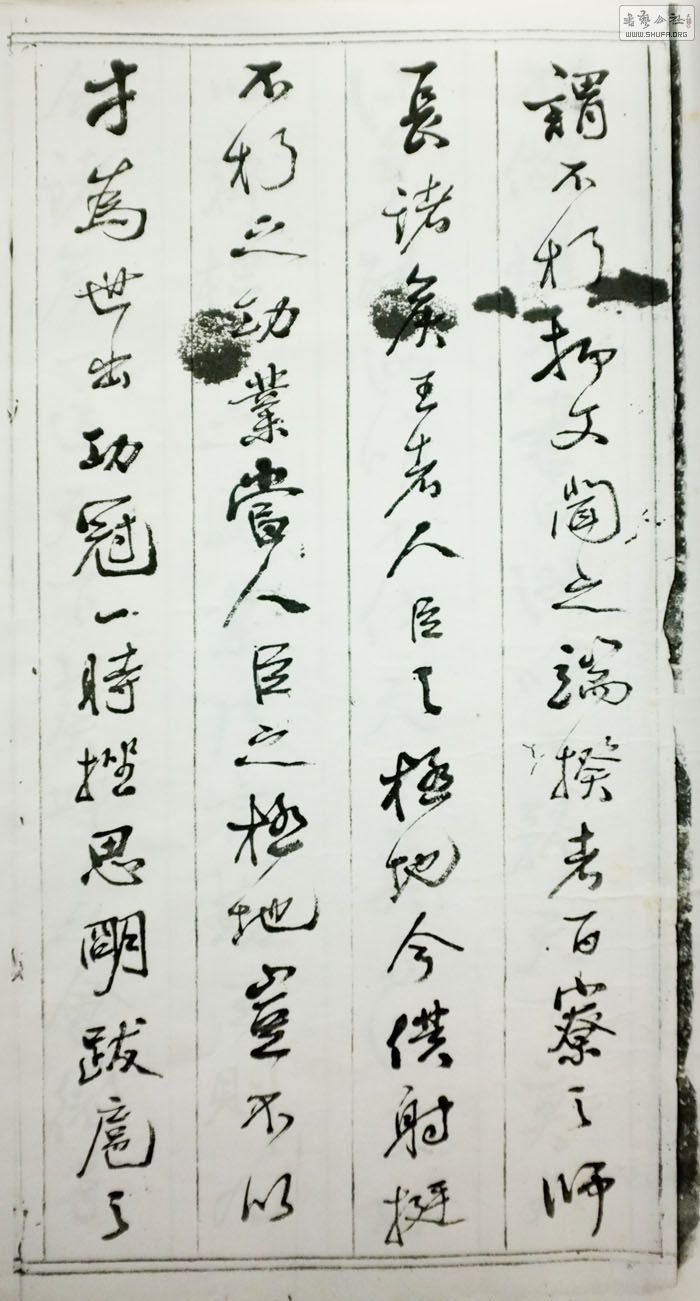 謂不朽抑又聞之端揆者百寮之師
長諸侯王者人臣之極地今僕射挺
不朽之功業當人臣之極地豈不以
才為世出功冠一時挫思明跋扈之
書藝公社
WWW.SHUFA.ORG